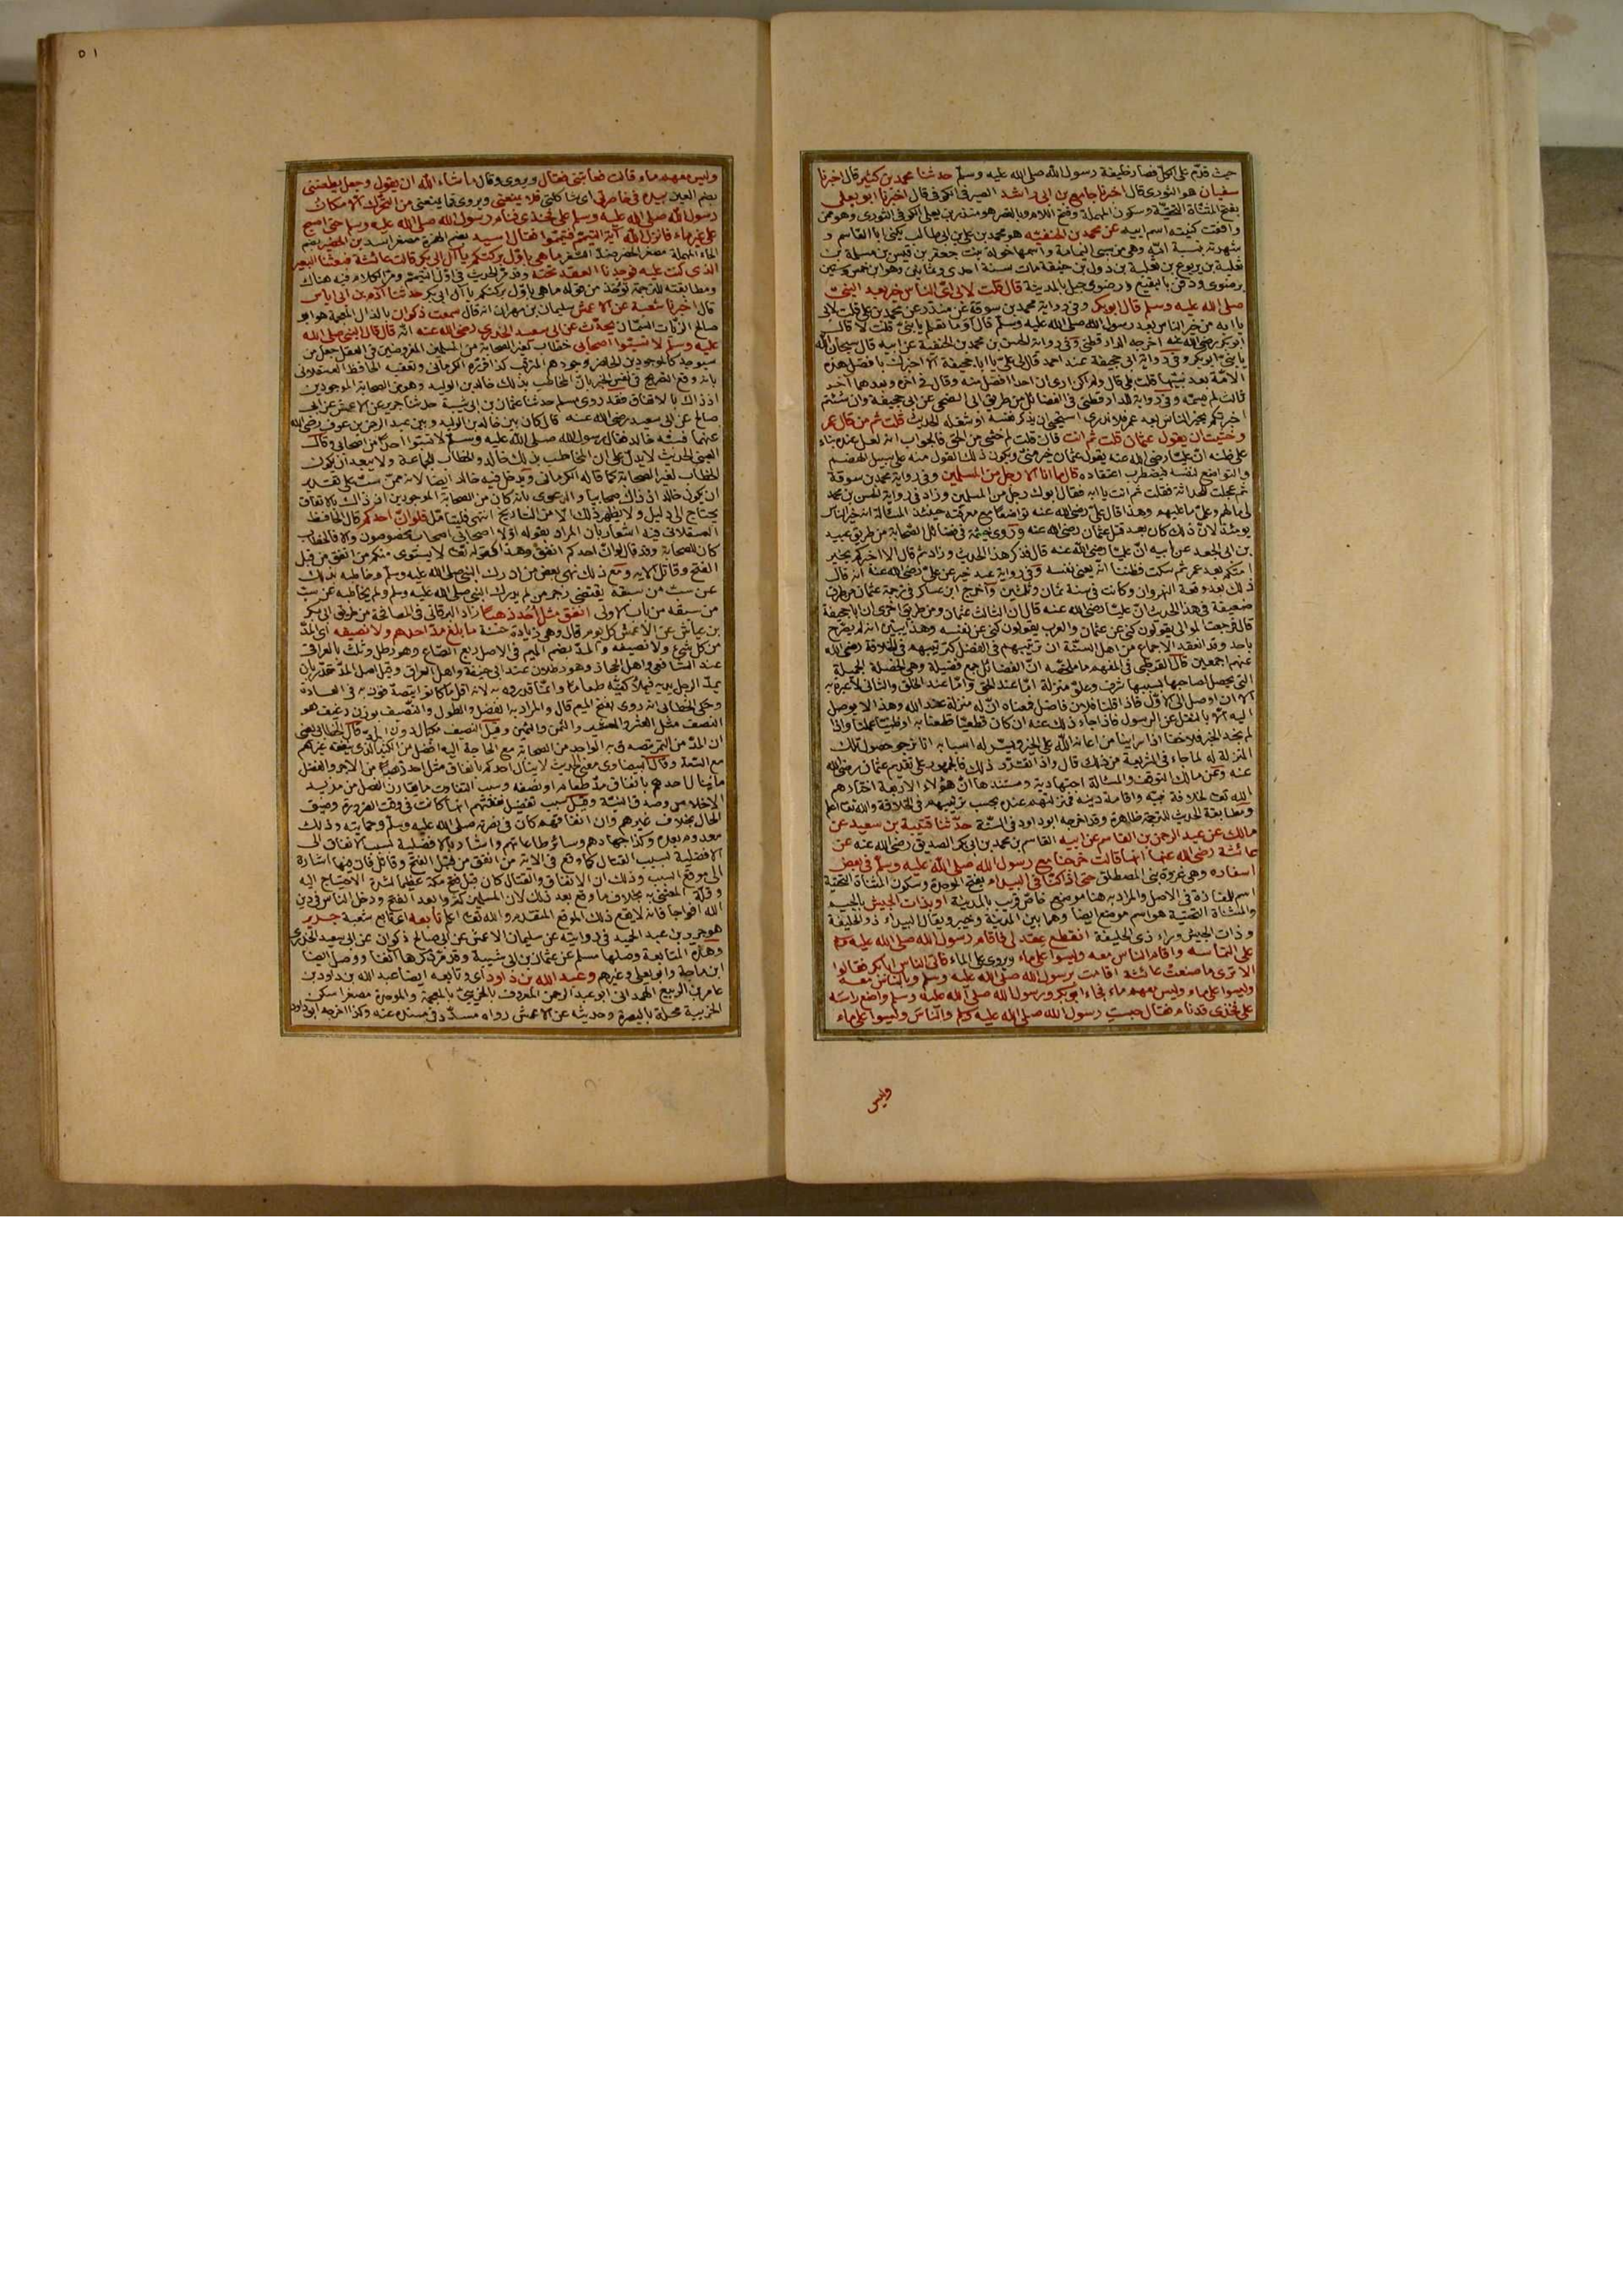 حيث قدّم على الكل فصار خليفة رسول الله صلى الله عليه وسلم حدثنا محمد بن كثير قال اخبرنا
سفيان هو الثورى قال اخبرنا جامع بن ابى راشد الصيرفى الكوفى قال اخبرنا ابو يعلى
بفتح المثناة التحتية وسكون المهملة وفتح اللام وبالقصر هو منذر بن يعلى الكوفى الثورى وهو ممن
وافقت كنيته اسم ابيه عن محمد بن الحنفية هو محمد بن على بن ابى طالب يكنى ابا القاسم و
شهرته بنسبة امّه وهى من سبى اليمامة واسمها خولة بنت جعفر بن قيس بن مسلمة بن
ثعلبة بن يربوع بن ثعلبة بن دول بن حنيفة مات سنة احدى وثمانين وهو ابن خمس وستين
برضوى ودفن بالبقيع ورضوى جبل بالمدينة قال قلت لابى اىّ الناس خير بعد النبى
صلى الله عليه وسلم قال ابو بكر وفى رواية محمد بن سوقة عن منذر عن محمد بن على قلت لابى
يا ابه من خير الناس بعد رسول الله صلى الله عليه وسلم قال اوما تعلم يا بنىّ قلت لا قال
ابو بكر رضى الله عنه اخرجه الدارقطنى وفى رواية الحسن بن محمد بن الحنفية عن ابيه قال سبحان الله
يا بنىّ ابو بكر وفى رواية ابى جحيفة عند احمد قال لى علىّ يا ابا جحيفة الا اخبرك بافضل هذه
الامّة بعد نبيّها قلت بلى قال ولم اكن ارى ان احدا افضل منه وقال فى اخره وبعدهما آخر
ثالث لم يسمّه وفى رواية الدارقطنى فى الفضائل من طريق ابى الضحى عن ابى جحيفة وان شئتم
اخبرتكم بخير الناس بعد عمر فلا ندرى استحيى ان يذكر نفسه او شغله الحديث قلت ثم من قال عمر
وخشيت ان يقول عثمان قلت ثم انت فان قلت لم خشى من الحق فالجواب انه لعل عنده بناء
على ظنه انّ عليّا رضى الله عنه يقول عثمان خير منى ويكون ذلك القول منه على سبيل الهضم
والتواضع لنفسه فيضطرب اعتقاده قال ما انا الا رجل من المسلمين وفى رواية محمد بن سوقة
ثم عجلت للحداثة فقلت ثم انت يا ابه فقال ابوك رجل من المسلمين وزاد فى رواية الحسن بن محمد
لى مالهم وعلىّ ما عليهم وهذا قال علىّ رضى الله عنه تواضعا مع معرفته حينئذ المسألة انه خير الناس
يومئذ لان ذلك كان بعد قتل عثمان رضى الله عنه وروى خيثمة فى فضائل الصحابة من طريق عبيد
بن ابى الجعد عن ابيه انّ عليّا رضى الله عنه قال فذكر هذا الحديث وزاد ثم قال الا اخبركم بخير
امتكم بعد عمر ثم سكت فظننا انّه يعنى نفسه وفى رواية عبد خير عن علىّ رضى الله عنه انه قال
ذلك بعد وقعة النهروان وكانت فى سنة ثمان وثلثين وأخرج ابن عساكر فى ترجمة عثمان من طرق
ضعيفة فى هذا الحديث انّ عليّا رضى الله عنه قال ان الثالث عثمان ومن طريق اخرى ان ابا جحيفة
قال فرجعت الموالى يقولون كنى عن عثمان والعرب يقولون كنى عن نفسه وهذا يبين انه لم يصرّح
باحد وقد انعقد الاجماع من اهل السنّة ان ترتيبهم فى الفضل كترتيبهم فى الخلافة رضى الله
عنهم اجمعين قال القرطبى فى المفهم ما ملخّصه انّ الفضائل جمع فضيلة وهى الخصلة الجميلة
التى يحصل لصاحبها بسببها شرف وعلوّ منزلة امّا عند الحق وامّا عند الخلق والثانى لا عبرة به
الا ان اوصل الى الاوّل فاذا قلنا فلان فاضل فمعناه انّ له منزلة عند الله وهذا لا يوصل
اليه الا بالنقل عن الرسول فاذا جاء ذلك عنه ان كان قطعيّا قطعنا به او ظنيّا عملنا واذا
لم نجد الخبر فلا خفا اذا رأينا من اعانه الله على الخير ويسّر له اسبابه انا نرجو حصول تلك
المنزلة له لما جاء فى الشريعة من ذلك قال واذا تقرّر ذلك فالجمهور على تقديم عثمان رضى الله
عنه وعن مالك التوقف والمسئلة اجتهادية ومستندها انّ هؤلاء الاربعة اختارهم
الله تعالى لخلافة نبيّه واقامة دينه فمنزلتهم عنده بحسب ترتيبهم فى الخلافة والله تعالى اعلم
ومطابقة الحديث للترجمة ظاهرة وقد اخرجه ابو داود فى السنّة حدّثنا قتيبة بن سعيد عن
مالك عن عبد الرحمن بن القاسم عن ابيه القاسم بن محمد بن ابى بكر الصديق رضى الله عنه عن
عائشة رضى الله عنها انها قالت خرجنا مع رسول الله صلى الله عليه وسلم فى بعض
اسفاره وهى غزوة بنى المصطلق حتى اذا كنّا فى البيداء بفتح الموحدة وسكون المثناة التحتية
اسم للمفازة فى الاصل والمراد به هنا موضع خاصّ قريب بالمدينة او بذات الجيش بالجيم
والمثناة التحتية هو اسم موضع ايضا وهما بين المدينة وخيبر ويقال البيداء ذو الحليفة
وذات الجيش وراء ذى الحليفة انقطع عقد لى فاقام رسول الله صلى الله عليه وسلم
على التماسه واقام الناس معه وليسوا على ماء ويروى على الماء فاتى الناس ابا بكر فقالوا
الا ترى ما صنعت عائشة اقامت برسول الله صلى الله عليه وسلم وبالناس معه
وليسوا على ماء وليس معهم ماء فجاء ابو بكر ورسول الله صلى الله عليه وسلم واضع رأسه
على فخذى قد نام فقال حبست رسول الله صلى الله عليه وسلم والناس وليسوا على ماء
وليس
٥١
وليس معهم ماء قالت فعاتبنى فقال ويروى وقال ما شاء الله ان يقول وجعل يطعننى
بضم العين بيده فى خاصرتى اى شاكلتى فلا يمنعنى ويروى فما يمنعنى من التحرّك الا مكان
رسول الله صلى الله عليه وسلم على فخذى فنام رسول الله صلى الله عليه وسلم حتى اصبح
على غير ماء فانزل الله آية التيمّم فتيمّموا فقال اسيد بضم الهمزة مصغر اسد بن الحضير بضم
الحاء المهملة مصغر الحضر ضدّ السّفر ما هى باوّل بركتكم يا آل ابى بكر قالت عائشة فبعثنا البعير
الذى كنت عليه فوجدنا العقد تحته وقد مرّ الحديث فى اوّل التيمّم ومرّ الكلام فيه هناك
ومطابقته للترجمة تؤخذ من قوله ما هى باوّل بركتكم يا آل ابى بكر حدثنا آدم بن ابى اياس
قال اخبرنا شعبة عن الاعمش سليمان بن مهران انه قال سمعت ذكوان بالذال المعجمة هو ابو
صالح الزيّات السمّان يحدّث عن ابى سعيد الخدرى رضى الله عنه انّه قال قال النبى صلى الله
عليه وسلم لا تسبّوا اصحابى خطاب لغير الصحابة من المسلمين المفروضين فى العقل جعل من
سيوجد كالموجود ووجودهم المترقب كذا قرّره الكرمانى وتعقبه الحافظ العسقلانى
بانه وقع التصريح فى نفس الخبر بانّ المخاطب بذلك خالد بن الوليد وهو من الصحابة الموجودين
اذ ذاك بالاتفاق فقد روى مسلم حدثنا عثمان بن ابى شيبة حدثنا جرير عن الاعمش عن ابى
صالح عن ابى سعيد رضى الله عنه قال كان بين خالد بن الوليد وبين عبد الرحمن بن عوف رضى الله
عنهما فسبّه خالد فقال رسول الله صلى الله عليه وسلم لا تسبّوا احدًا من اصحابى وقال
العينى الحديث لا يدلّ على ان المخاطب بذلك خالد والخطاب للجماعة ولا يبعد ان يكون
الخطاب لغير الصحابة كما قاله الكرمانى ويدخل فيه خالد ايضا لانه ممّن سبّ على تقدير
ان يكون خالد اذ ذاك صحابيا والدعوى بانه كان من الصحابة الموجودين اذ ذاك بالاتفاق
يحتاج الى دليل ولا يظهر ذلك الا من التاريخ انتهى فليتأمّل فلو انّ احدكم قال الحافظ
العسقلانى فيه اشعار بان المراد بقوله اوّلا اصحابى اصحاب مخصوصون والا فالخطاب
كان للصحابة وقد قال لو انّ احدكم انفق وهذا كقوله تعالى لا يستوى منكم من انفق من قبل
الفتح وقاتل الاية ومع ذلك نهى بعض من ادرك النبى صلى الله عليه وسلم وخاطبه بذلك
عن سبّ من سبقه يقتضى زجر من لم يدرك النبى صلى الله عليه وسلم ولم يخاطبه عن سبّ
من سبقه من باب الاولى انفق مثل أُحُد ذهبًا زاد البرقانى فى المصافحة من طريق ابى بكر
بن عياش عن الاعمش كل يوم قال وهى زيادة حسنة ما بلغ مدّ احدهم ولا نصيفه اى المدّ
من كل شىء ولا نصيفه والمدّ بضم الميم فى الاصل ربع الصّاع وهو رطل وثلث بالعراقى
عند الشافعى واهل الحجاز وهو رطلان عند ابى حنيفة واهل العراق وقيل اصل المدّ مقدّر بان
يمدّ الرجل يديه فيملأ كفيّه طعاما وانّما قدروه به لانه اقلّ ما كانوا يتصدّقون به فى العادة
وحكى الخطابى انه روى بفتح الميم قال والمراد به الفضل والطول والنّصيف بوزن رغيف هو
النصف مثل العشر والعشير والثمن والثمين وقيل النصيف مكيال دون المدّ قال الخطابى يعنى
ان المدّ من التمر يتصدق به الواحد من الصحابة مع الحاجة اليه افضل من الكثير الذى ينفقه غيرهم
مع السّعة وقال البيضاوى معنى الحديث لا ينال احدكم بانفاق مثل احد ذهبا من الاجر والفضل
ما ينال احدهم بانفاق مدّ طعام او نصفه وسبب التفاوت ما يقارن الفضل من مزيد
الاخلاص وصدق النيّة وقيل سبب تفضيل نفقتهم انها كانت فى وقت الضرورة وضيق
الحال بخلاف غيرهم وان انفاقهم كان فى نصرته صلى الله عليه وسلم وحمايته وذلك
معدوم بعده وكذا جهادهم وسائر طاعاتهم واشار بالافضلية بسبب الانفاق الى
الافضلية بسبب القتال كما وقع فى الاية من انفق من قبل الفتح وقاتل فان فيها اشارة
الى موقع السبب وذلك ان الانفاق والقتال كان قبل فتح مكة عظيما لشدة الاحتياج اليه
وقلّة المعتنى به بخلاف ما وقع بعد ذلك لان المسلمين كثروا بعد الفتح ودخل الناس فى دين
الله افواجا فانه لا يقع ذلك الموقع المتقدم والله تعالى اعلم تابعه اى تابع شعبة جرير
هو جرير بن عبد الحميد فى روايته عن سليمان الاعمش عن ابى صالح ذكوان عن ابى سعيد الخدرى
وهذه المتابعة وصلها مسلم عن عثمان بن ابى شيبة وقد مرّ ذكرها آنفا ووصل ايضا
ابن ماجة وابو يعلى وغيرهم وعبد الله بن داود اى وتابعه ايضا عبد الله بن داود بن
عامر بن الربيع الهمدانى ابو عبد الرحمن المعروف بالخريبىّ بالمعجمة والموحدة مصغرا سكن
الخريبة محلة بالبصرة وحديثه عن الاعمش رواه مسدّد فى مسنده عنه وكذا اخرجه ابو داود